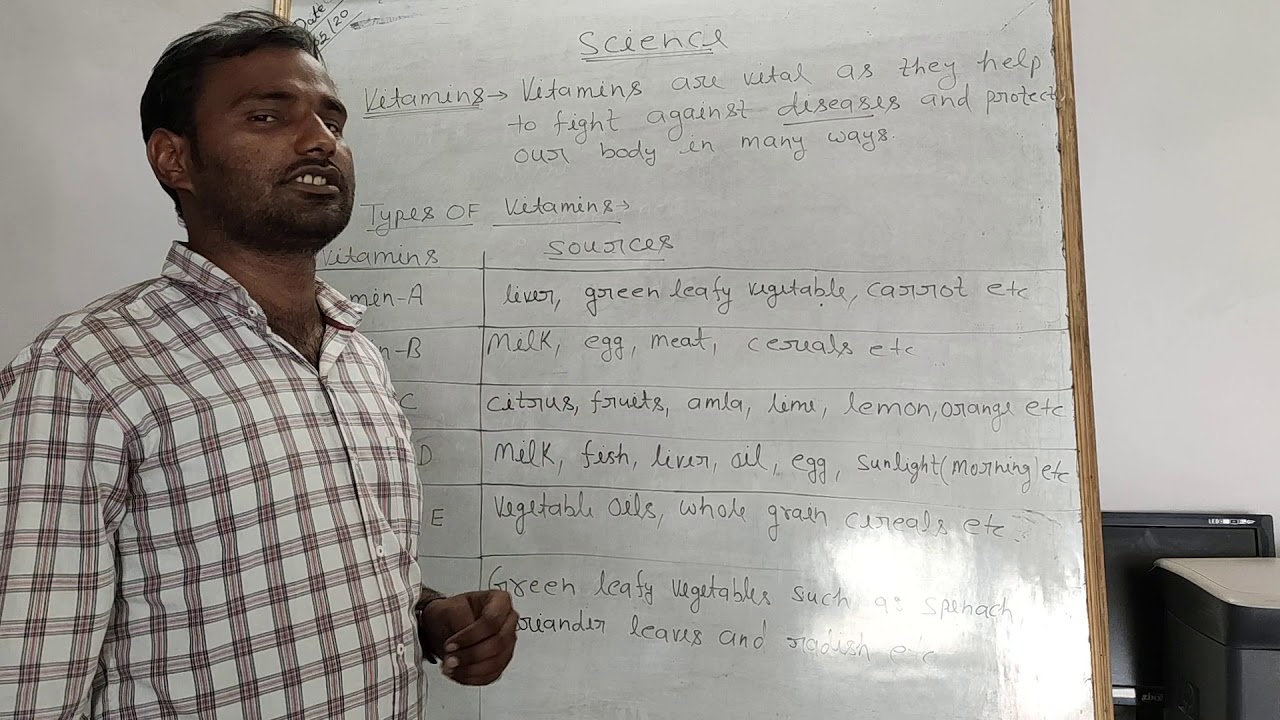 Date
22/20
Science
Vitamins → Vitamins are vital as they help
to fight against diseases and protect
our body in many ways.
Types OF Vitamins →
Vitamins sources
min-A liver, green leafy vegitable, carrot etc
n-B Milk, egg, meat, cereals etc
C citrus, fruits, amla, lime, lemon, orange etc
D Milk, fish, liver, oil, egg, sunlight (morning) etc
E Vegetable oils, whole grain cereals etc.
Green leafy vegetables such as spenach,
oriander leaves and radish etc
LED